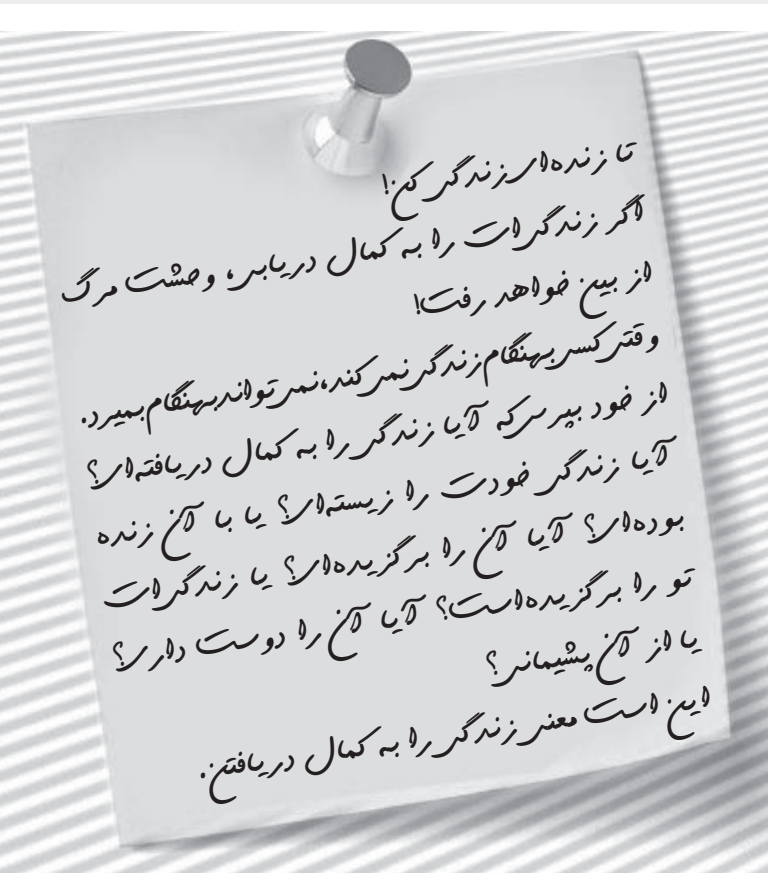 تا زنده‌ای زندگی کن!
اگر زندگی‌ات را به کمال دریابی، وحشت مرگ
از بین خواهد رفت!
وقتی کسی بهنگام زندگی نمی‌کند، نمی‌تواند بهنگام بمیرد.
از خود بپرس که آیا زندگی را به کمال دریافته‌ای؟
آیا زندگی خودت را زیسته‌ای؟ یا با آن زنده
بوده‌ای؟ آیا آن را برگزیده‌ای؟ یا زندگی‌ات
تو را برگزیده‌است؟ آیا آن را دوست داری؟
یا از آن پشیمانی؟
این است معنی زندگی را به کمال دریافتن.